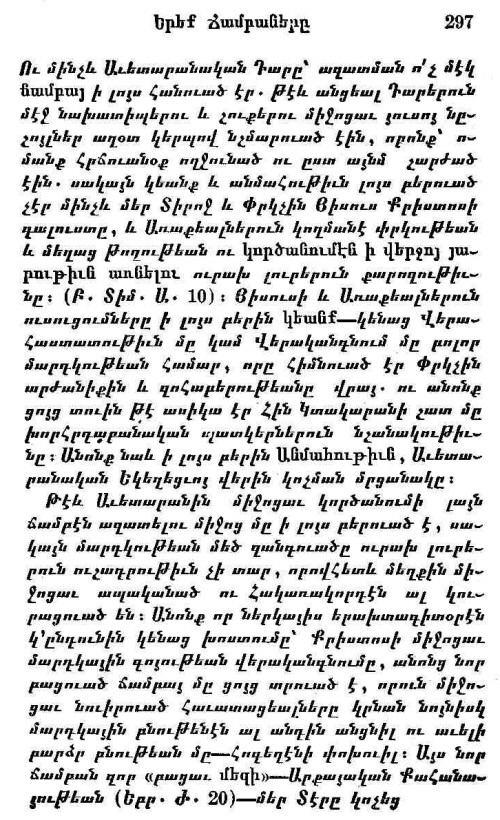 Երեք Ճամբաները 297
Ու մինչև Աւետարանական Դարը՝ ազատման ո՛չ մէկ
ճամբայ ի լոյս հանուած էր. թէև անցեալ Դարերուն
մէջ նախատիպերու և շուքերու միջոցաւ յուսոյ նը-
շոյլներ աղօտ կերպով նշմարուած էին, որոնք՝ ո-
մանք հրճուանօք ողջունած ու ըստ այնմ շարժած
էին. սակայն կեանք և անմահութիւն լոյս բերուած
չէր մինչև մեր Տիրոջ և Փրկչին Յիսուս Քրիստոսի
գալուստը, և Առաքեալներուն կողմանէ փրկութեան
և մեղաց թողութեան ու կործանումէն ի վերջոյ յա-
րութիւն առնելու ուրախ լուրերուն քարոզութիւ-
նը: (Բ. Տիմ. Ա. 10): Յիսուսի և Առաքեալներուն
ուսուցումները ի լոյս բերին կեանք—կենաց Վերա-
հաստատութիւն մը կամ Վերականգնում մը բոլոր
մարդկութեան համար, որը հիմնուած էր Փրկչին
արժանիքին և զոհաբերութեանը վրայ. ու անոնք
ցոյց տուին թէ ասիկա էր Հին Կտակարանի շատ մը
խորհրդաբանական պատկերներուն նշանակութիւ-
նը: Անոնք նաև ի լոյս բերին Անմահութիւն, Աւետա-
րանական Եկեղեցւոյ վերին կոչման մրցանակը:
Թէև Աւետարանին միջոցաւ կործանումի լայն
ճամբէն ազատելու միջոց մը ի լոյս բերուած է, սա-
կայն մարդկութեան մեծ զանգուածը ուրախ լուրե-
րուն ուշադրութիւն չի տար, որովհետև մեղքին մի-
ջոցաւ ապականած ու Հակառակորդէն ալ կու-
րացուած են: Անոնք որ ներկայիս երախտագիտօրէն
կ'ընդունին կենաց խոստումը՝ Քրիստոսի միջոցաւ
մարդկային գոյութեան վերականգնումը, անոնց նոր
բացուած ճամբայ մը ցոյց տրուած է, որուն միջո-
ցաւ նուիրուած հաւատացեալները կրնան նոյնիսկ
մարդկային բնութենէն ալ անդին անցնիլ ու աւելի
բարձր բնութեան մը—հոգեղէնի փոխուիլ: Այս նոր
ճամբան զոր «բացաւ մեզի»—Արքայական Քահանա-
յութեան (Եբր. Ժ. 20)—մեր Տէրը կոչեց